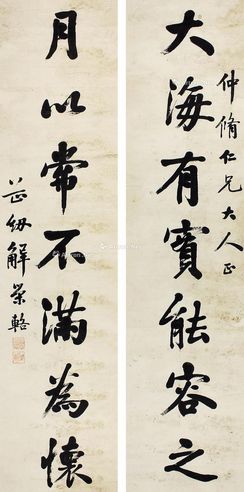 仲脩仁兄大人正
大海有實能容之
月以常不滿為懷
芷紉解榮輅